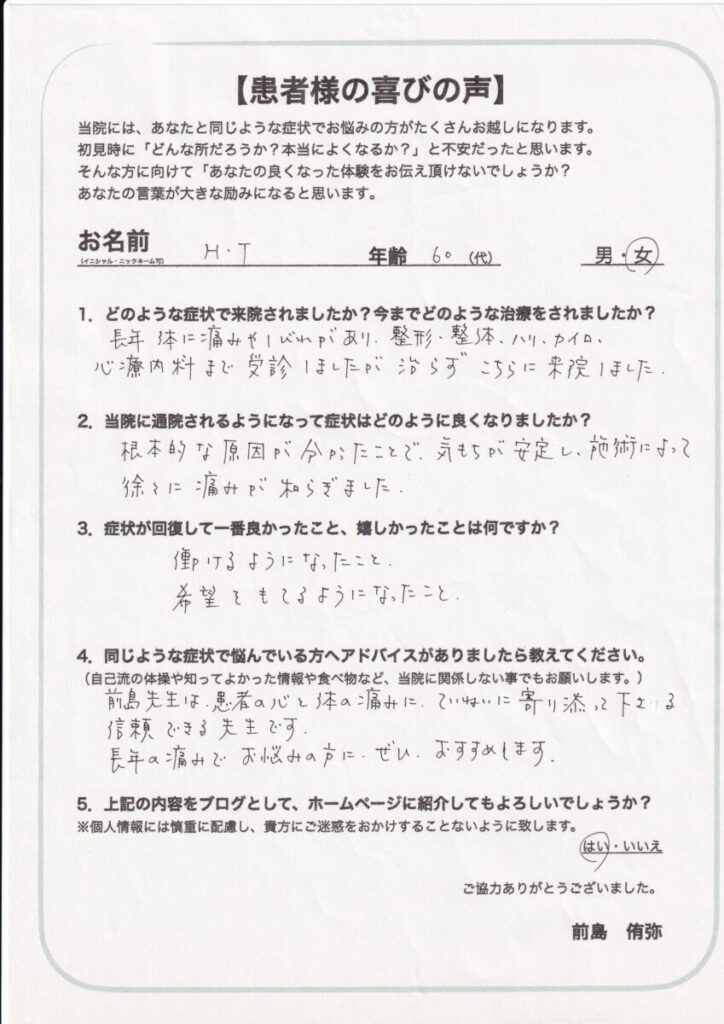 【患者様の喜びの声】
当院には、あなたと同じような症状でお悩みの方がたくさんお越しになります。
初見時に「どんな所だろうか？本当によくなるか？」と不安だったと思います。
そんな方に向けて「あなたの良くなった体験をお伝え頂けないでしょうか？
あなたの言葉が大きな励みになると思います。
お名前 H・T 年齢 60 （代） 男・女
（イニシャル・ニックネーム可）
1．どのような症状で来院されましたか？今までどのような治療をされましたか？
長年体に痛みやしびれがあり、整形・整体、ハリ、カイロ、
心療内科まで受診しましたが治らずこちらに来院しました。
2．当院に通院されるようになって症状はどのように良くなりましたか？
根本的な原因が分かったことで、気もちが安定し、施術によって
徐々に痛みが和らぎました。
3．症状が回復して一番良かったこと、嬉しかったことは何ですか？
働けるようになったこと。
希望をもてるようになったこと。
4．同じような症状で悩んでいる方へアドバイスがありましたら教えてください。
（自己流の体操や知ってよかった情報や食べ物など、当院に関係しない事でもお願いします。）
前島先生は、患者の心と体の痛みに、ていねいに寄り添って下さる
信頼できる先生です。
長年の痛みでお悩みの方に、ぜひ、おすすめします。
5．上記の内容をブログとして、ホームページに紹介してもよろしいでしょうか？
※個人情報には慎重に配慮し、貴方にご迷惑をおかけすることないように致します。
はい・いいえ
ご協力ありがとうございました。
前島　侑弥